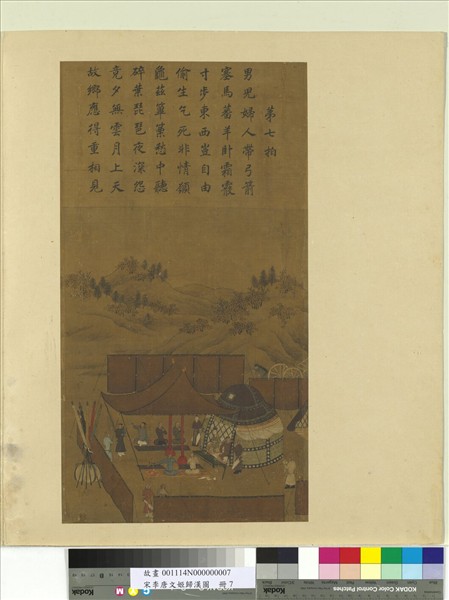 第七拍
男兒婦人帶弓箭
塞馬蕃羊卧霜霰
寸步東西豈自由
偷生乞死非情願
龜茲篳篥愁中聽
碎葉琵琶夜深怨
竟夕無雲月上天
故鄉應得重相見
故畫 001114N000000007
宋李唐文姬歸漢圖 冊 7
Kodak
KODAK Color Control Patches
Kodak